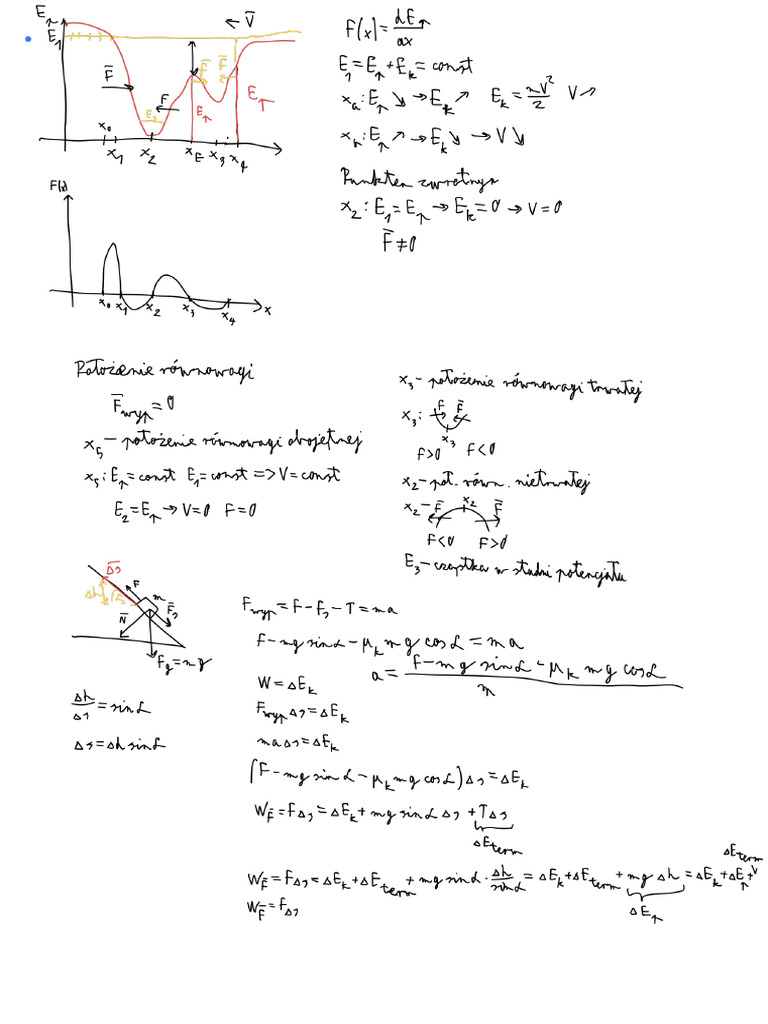 E↑
E₁
← V̄
F̄
F
F̄ F̄
E₃
E↑
E↑
x₀
x₁ x₂ x_E x₃ x₄
F(x) = dE↑/dx
E₁ = E↑ + E_k = const
x_a : E↑ ↘ → E_k ↗ E_k = mV²/2 V ↗
x_b : E↑ ↗ → E_k ↘ → V ↘
zwrotny
x₂ : E₁ = E↑ → E_k = 0 → V = 0
F̄ ≠ 0
F(x)
x₀ x₁ x₂ x₃ x₄ x
Położenie równowagi
F̄wyp = 0
x₅ – położenie równowagi obojętnej
x₅ : E↑ = const E₁ = const => V = const
E₂ = E↑ → V = 0 F = 0
x₃ – położenie równowagi trwałej
x₃ : F F̄
x₃
F>0 F<0
x₂ – poł. równ. nietrwałej
x₂ – F̄ x₂ F̄
F<0 F>0
E₃ – cząstka w studni potencjału
Δs
Δh
F m
N̄ F̄s
Fg = mg
Δh/Δs = sinα
Δs = Δh sinα
Fwyp = F – Fs – T = ma
F – mg sinα – μ_k mg cosα = ma
a = (F – mg sinα – μ_k mg cosα)/m
W = ΔE_k
Fwyp Δs = ΔE_k
maΔs = ΔE_k
(F – mg sinα – μ_k mg cosα)Δs = ΔE_k
W_F̄ = FΔs = ΔE_k + mg sinα Δs + TΔs
ΔEterm
W_F̄ = FΔs = ΔE_k + ΔEterm + mg sinα · Δh/sinα = ΔE_k + ΔEterm + mgΔh = ΔE_k + ΔE↑ +
ΔEterm
ΔE↑
W_F̄ = FΔs